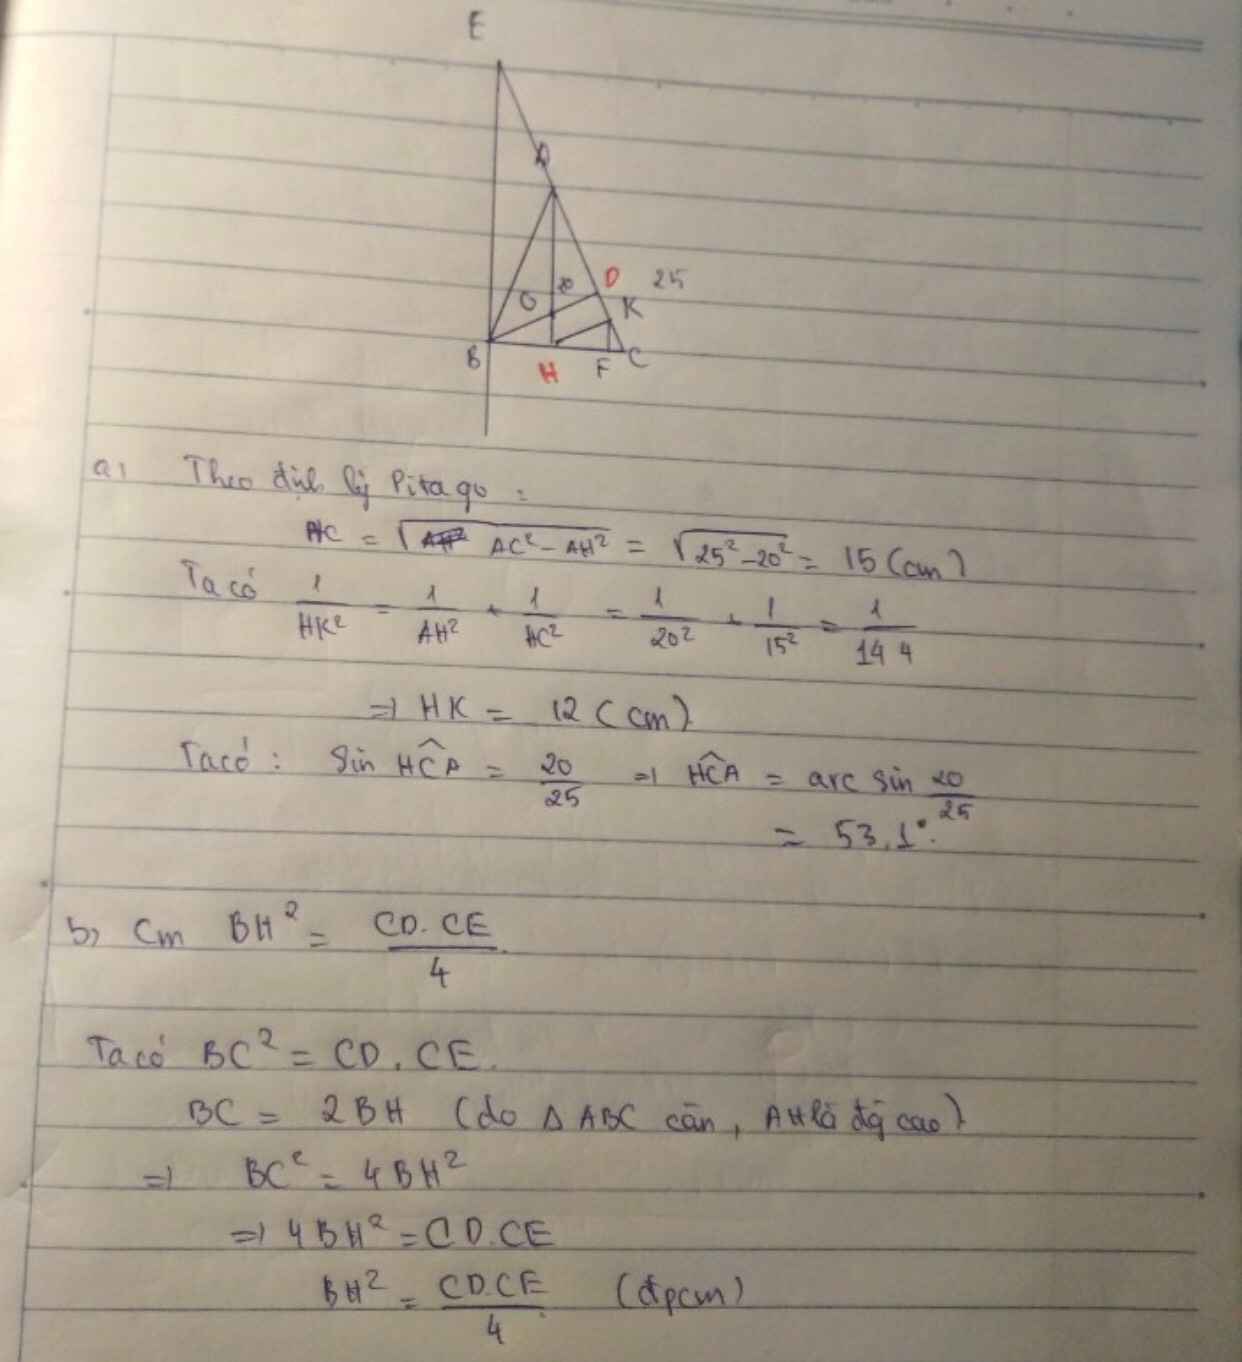 E
A
O
D
25
K
B
H
F
C
a, Theo định lý Pitago :
HC = √AC² - AH² = √25² - 20² = 15 (cm)
Ta có 1/HK² = 1/AH² + 1/HC² = 1/20² + 1/15² = 1/144
=> HK = 12 (cm)
Ta có : Sin HCA = 20/25 => HCA = arc sin 20/25
= 53,1°.
b, Cm BH² = CD.CE/4
Ta có BC² = CD.CE.
BC = 2BH (do Δ ABC cân, AH là độ cao)
=> BC² = 4BH²
=> 4BH² = CD.CE
BH² = CD.CE/4 (đpcm)